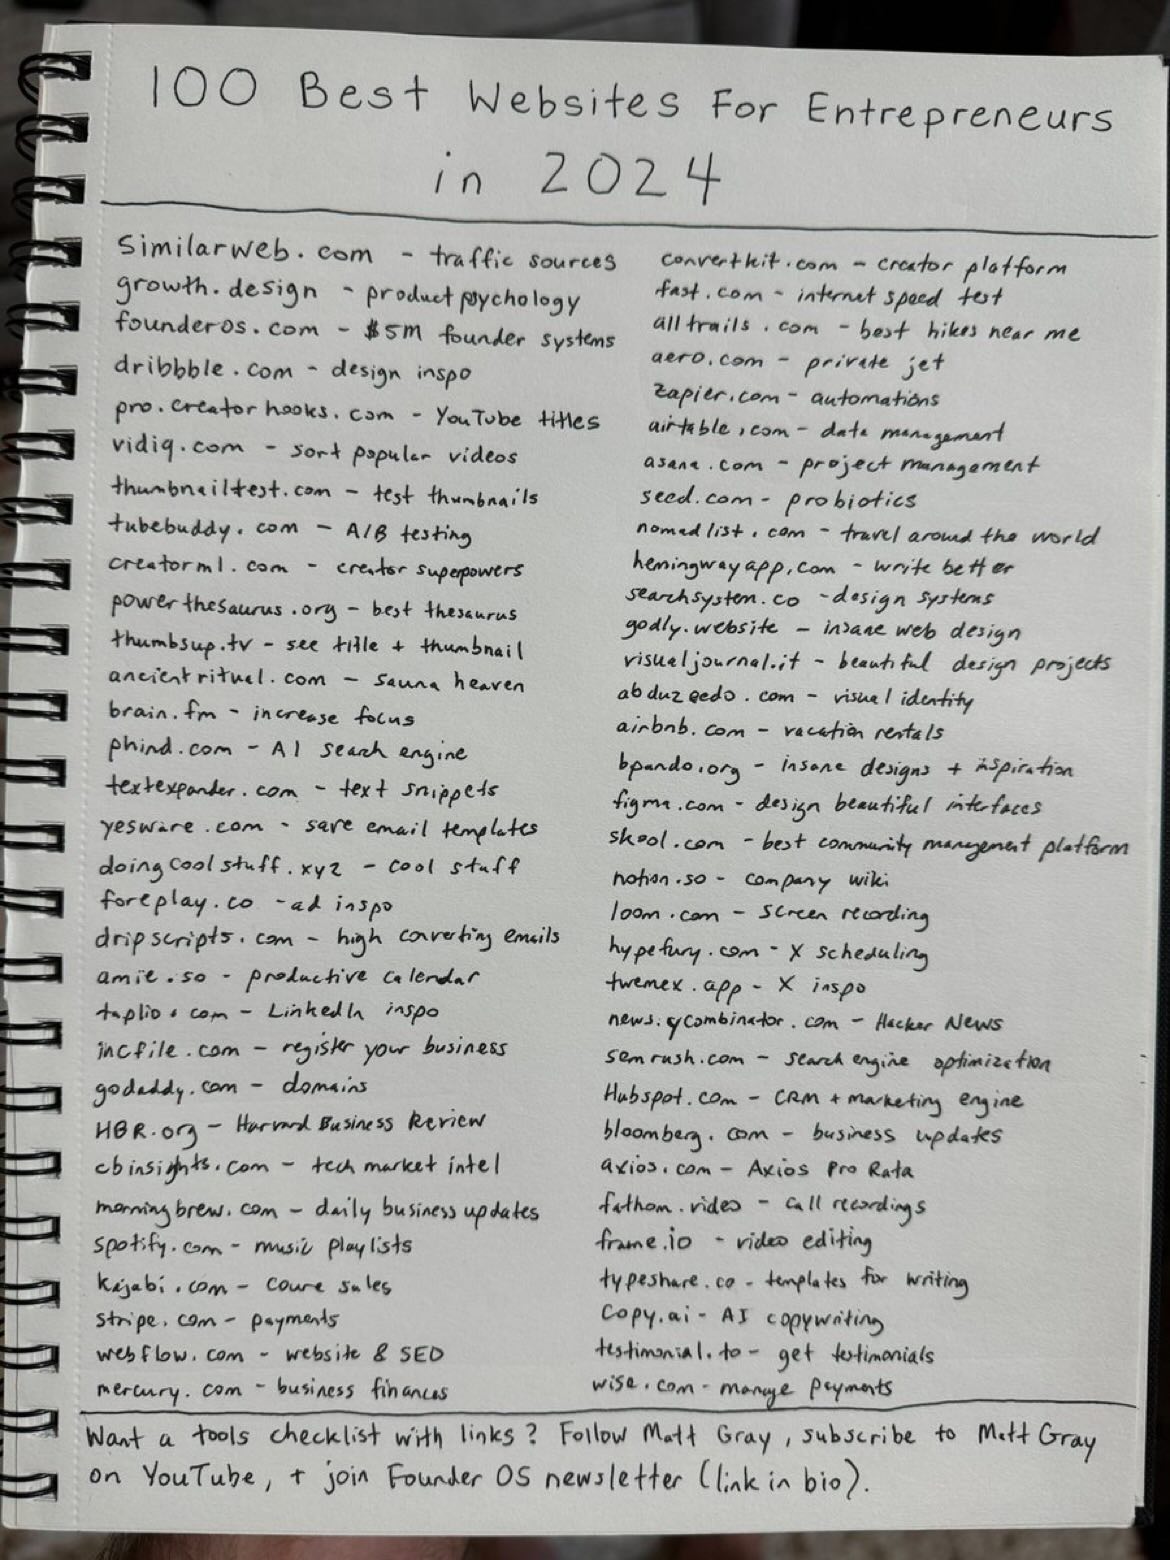 100 Best Websites For Entrepreneurs
in 2024
Similarweb.com - traffic sources
growth.design - product psychology
founderos.com - $5M founder systems
dribbble.com - design inspo
pro.creatorhooks.com - YouTube titles
vidiq.com - sort popular videos
thumbnailtest.com - test thumbnails
tubebuddy.com - A/B testing
creatorml.com - creator superpowers
powerthesaurus.org - best thesaurus
thumbsup.tv - see title + thumbnail
ancientritual.com - sauna heaven
brain.fm - increase focus
phind.com - AI search engine
textexpander.com - text snippets
yesware.com - save email templates
doingcoolstuff.xyz - cool stuff
foreplay.co - ad inspo
dripscripts.com - high converting emails
amie.so - productive calendar
taplio.com - LinkedIn inspo
incfile.com - register your business
godaddy.com - domains
HBR.org - Harvard Business Review
cbinsights.com - tech market intel
morningbrew.com - daily business updates
spotify.com - music playlists
kajabi.com - coure sales
stripe.com - payments
webflow.com - website & SEO
mercury.com - business finances
convertkit.com - creator platform
fast.com - internet speed test
alltrails.com - best hikes near me
aero.com - private jet
Zapier.com - automations
airtable.com - data management
asana.com - project management
seed.com - probiotics
nomadlist.com - travel around the world
hemingwayapp.com - write better
searchsystem.co - design systems
godly.website - insane web design
visualjournal.it - beautiful design projects
abduzeedo.com - visual identity
airbnb.com - vacation rentals
bpando.org - insane designs + inspiration
figma.com - design beautiful interfaces
skool.com - best community management platform
notion.so - company wiki
loom.com - screen recording
hypefury.com - X scheduling
twemex.app - X inspo
news.ycombinator.com - Hacker News
semrush.com - search engine optimization
Hubspot.com - CRM + marketing engine
bloomberg.com - business updates
axios.com - Axios Pro Rata
fathom.video - call recordings
frame.io - video editing
typeshare.co - templates for writing
Copy.ai - AI copywriting
testimonial.to - get testimonials
wise.com - manage payments
Want a tools checklist with links? Follow Matt Gray, subscribe to Matt Gray
on YouTube, + join Founder OS newsletter (link in bio).